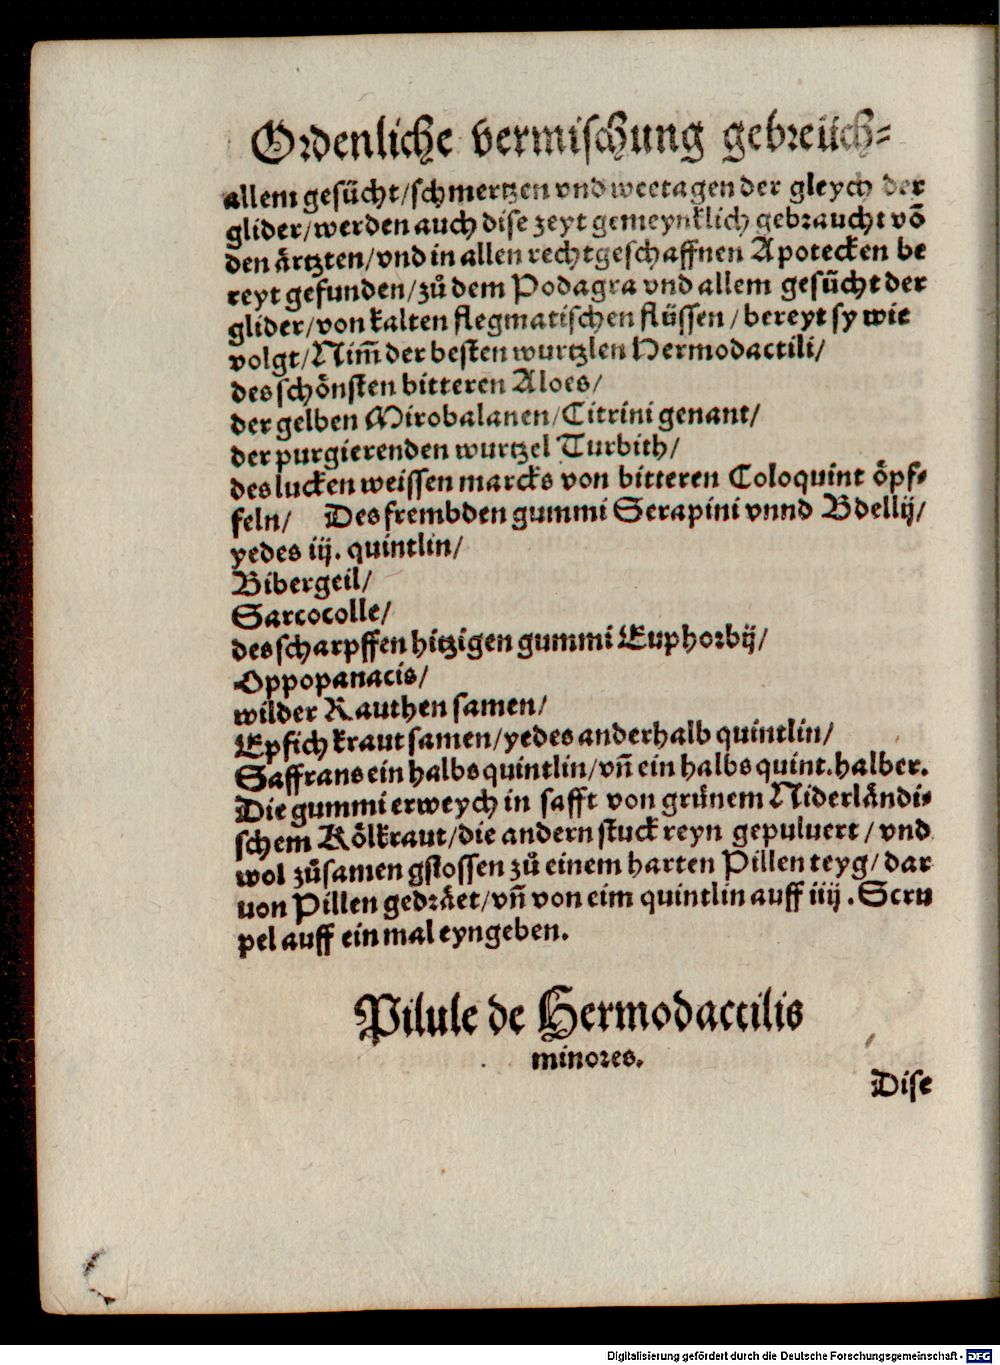 Ordenliche vermischung gebreüch-
allem gesücht/schmertzen vnd weetagen der gleych der
glider/werden auch dise zeyt gemeynklich gebraucht võ
den ärtzten/vnd in allen rechtgeschaffnen Apotecken be
reyt gefunden/zů dem Podagra vnd allem gesücht der
glider/von kalten flegmatischen flüssen/bereyt sy wie
volgt/Nim̃ der besten wurtzlen Hermodactili/
des schönsten bitteren Aloes/
der gelben Mirobalanen/Citrini genant/
der purgierenden wurtzel Turbith/
des lucken weissen marcks von bitteren Coloquint öpf-
feln/ Des frembden gummi Serapini vnnd Bdellij/
yedes iij. quintlin/
Bibergeil/
Sarcocolle/
des scharpffen hitzigen gummi Euphorbij/
Oppopanacis/
wilder Rauthen samen/
Epfich kraut samen/yedes anderhalb quintlin/
Saffrans ein halbs quintlin/vñ ein halbs quint.halber.
Die gummi erweych in safft von grünem Niderländi-
schem Kölkraut/die andern stuck reyn gepuluert/vnd
wol zůsamen gstossen zů einem harten Pillen teyg/dar
uon Pillen gedräet/vñ von eim quintlin auff iiij.Scru
pel auff ein mal eyngeben.
Pilule de Hermodactilis
minores.
Dise
Digitalisierung gefördert durch die Deutsche Forschungsgemeinschaft - DFG